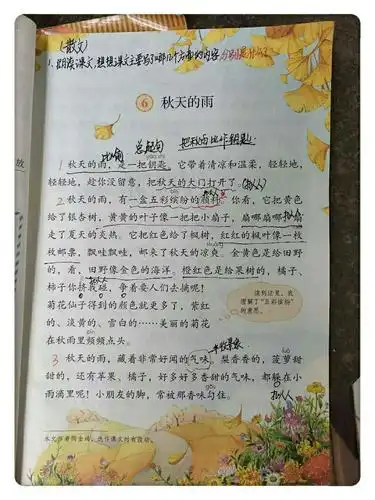 (散文)
1、朗读课文,想想课文主要写了哪几个方面的内容 分别是什么?
6 秋天的雨
比喻 总起句 把秋雨比作钥匙
yào shi
1 秋天的雨,是一把钥匙。它带着清凉和温柔,轻轻地,
轻轻地,趁你没留意,把秋天的大门打开了。(拟人)
2 秋天的雨,有一盒五彩缤纷的颜料。你看,它把黄色
给了银杏树,黄黄的叶子像一把把小扇子,扇哪扇哪,扇
走了夏天的炎热。它把红色给了枫树,红红的枫叶像一枚
枚邮票,飘哇飘哇,邮来了秋天的凉爽。金黄色是给田野
的,看,田野像金色的海洋。橙红色是给果树的,橘子、
柿子你挤我碰,争着要人们去摘呢!
菊花仙子得到的颜色就更多了,紫红
的、淡黄的、雪白的……美丽的菊花
在秋雨里频频点头。
读到这里,我
理解了“五彩缤纷”
的意思。
3 秋天的雨,藏着非常好闻的气味。梨香香的,菠萝甜
甜的,还有苹果、橘子,好多好多香甜的气味,都躲在小
雨滴里呢!小朋友的脚,常被那香味勾住。
拟人
本文作者陶金鸿,选作课文时有改动。